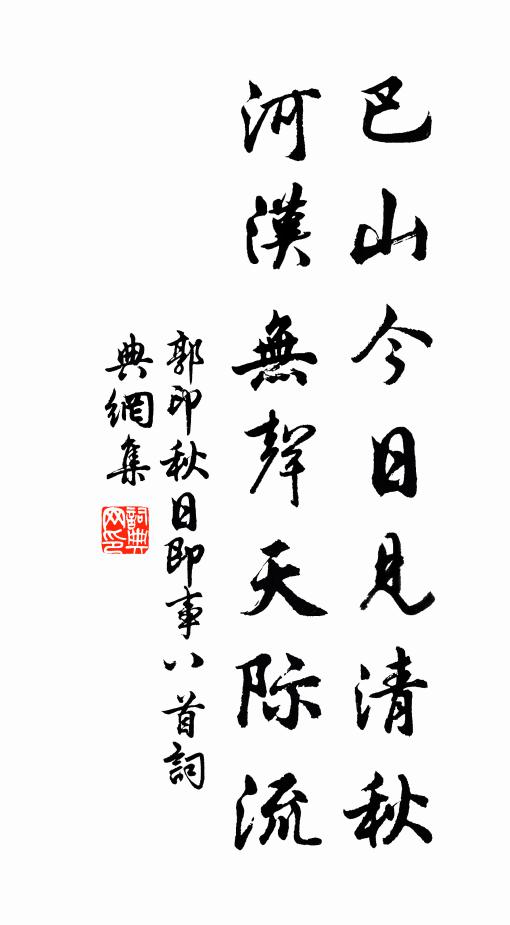 巴山今日見清秋
河漢無聲天際流
郭印秋日即事八首詞
典網集
詞典
网印